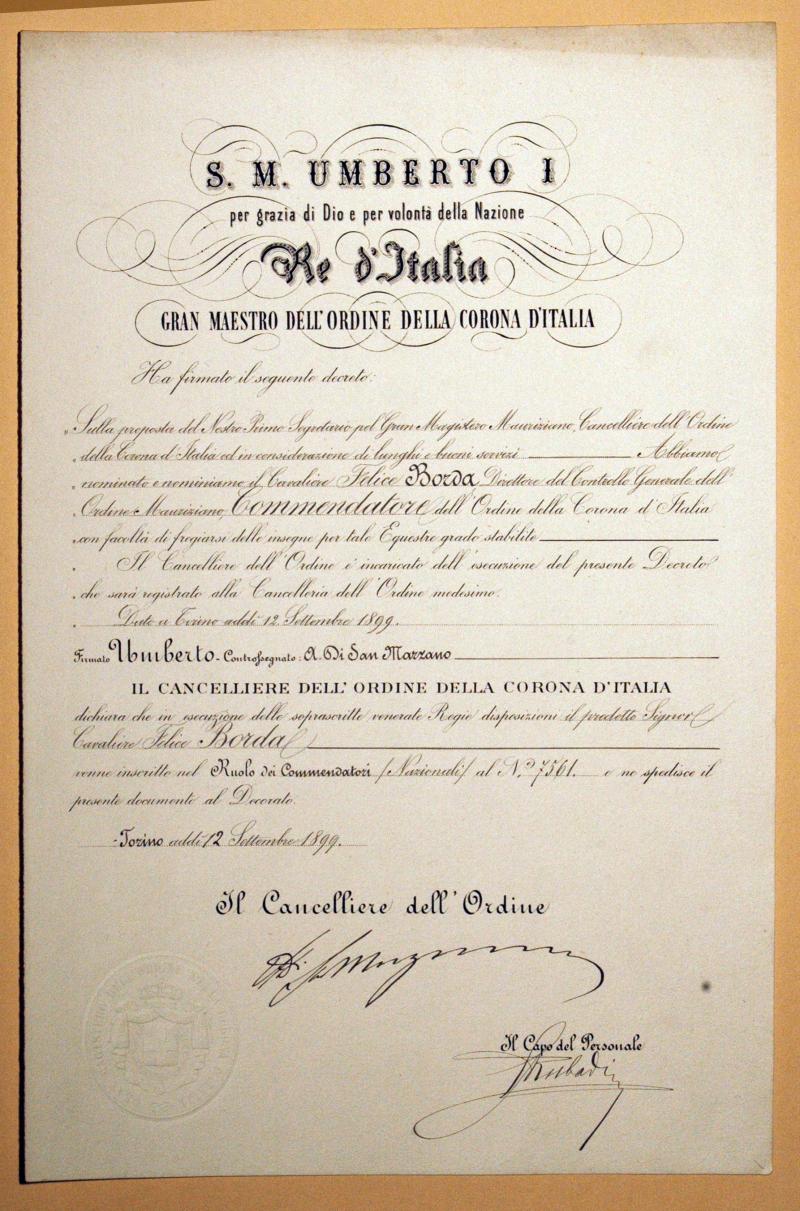 S. M. UMBERTO I
per grazia di Dio e per volontà della Nazione
Re d'Italia
GRAN MAESTRO DELL'ORDINE DELLA CORONA D'ITALIA
Ha firmato il seguente decreto:
„ Sulla proposta del Nostro Primo Segretario pel Gran Magistero Mauriziano, Cancelliere dell'Ordine
„ della Corona d'Italia ed in considerazione di lunghi e buoni servizi Abbiamo
„ nominato e nominiamo il Cavaliere Felice Borda Direttore del Controllo Generale dell'
„ Ordine Mauriziano, Commendatore dell'Ordine della Corona d'Italia
„ con facoltà di fregiarsi delle insegne per tale Equestre grado stabilite
„ Il Cancelliere dell'Ordine è incaricato dell'esecuzione del presente Decreto
„ che sarà registrato alla Cancelleria dell'Ordine medesimo.
„ Dato a Torino addì 12 Settembre 1899.
Firmato Umberto - Controssegnato: A. Di San Marzano
IL CANCELLIERE DELL'ORDINE DELLA CORONA D'ITALIA
dichiara che in esecuzione delle soprascritte venerate Regie disposizioni il predetto Signor
Cavaliere Felice Borda
venne inscritto nel Ruolo dei Commendatori (Nazionali) al N.º 7561. e ne spedisce il
presente documento al Decorato.
Torino addì 12 Settembre 1899.
Il Cancelliere dell'Ordine
Il Capo del Personale